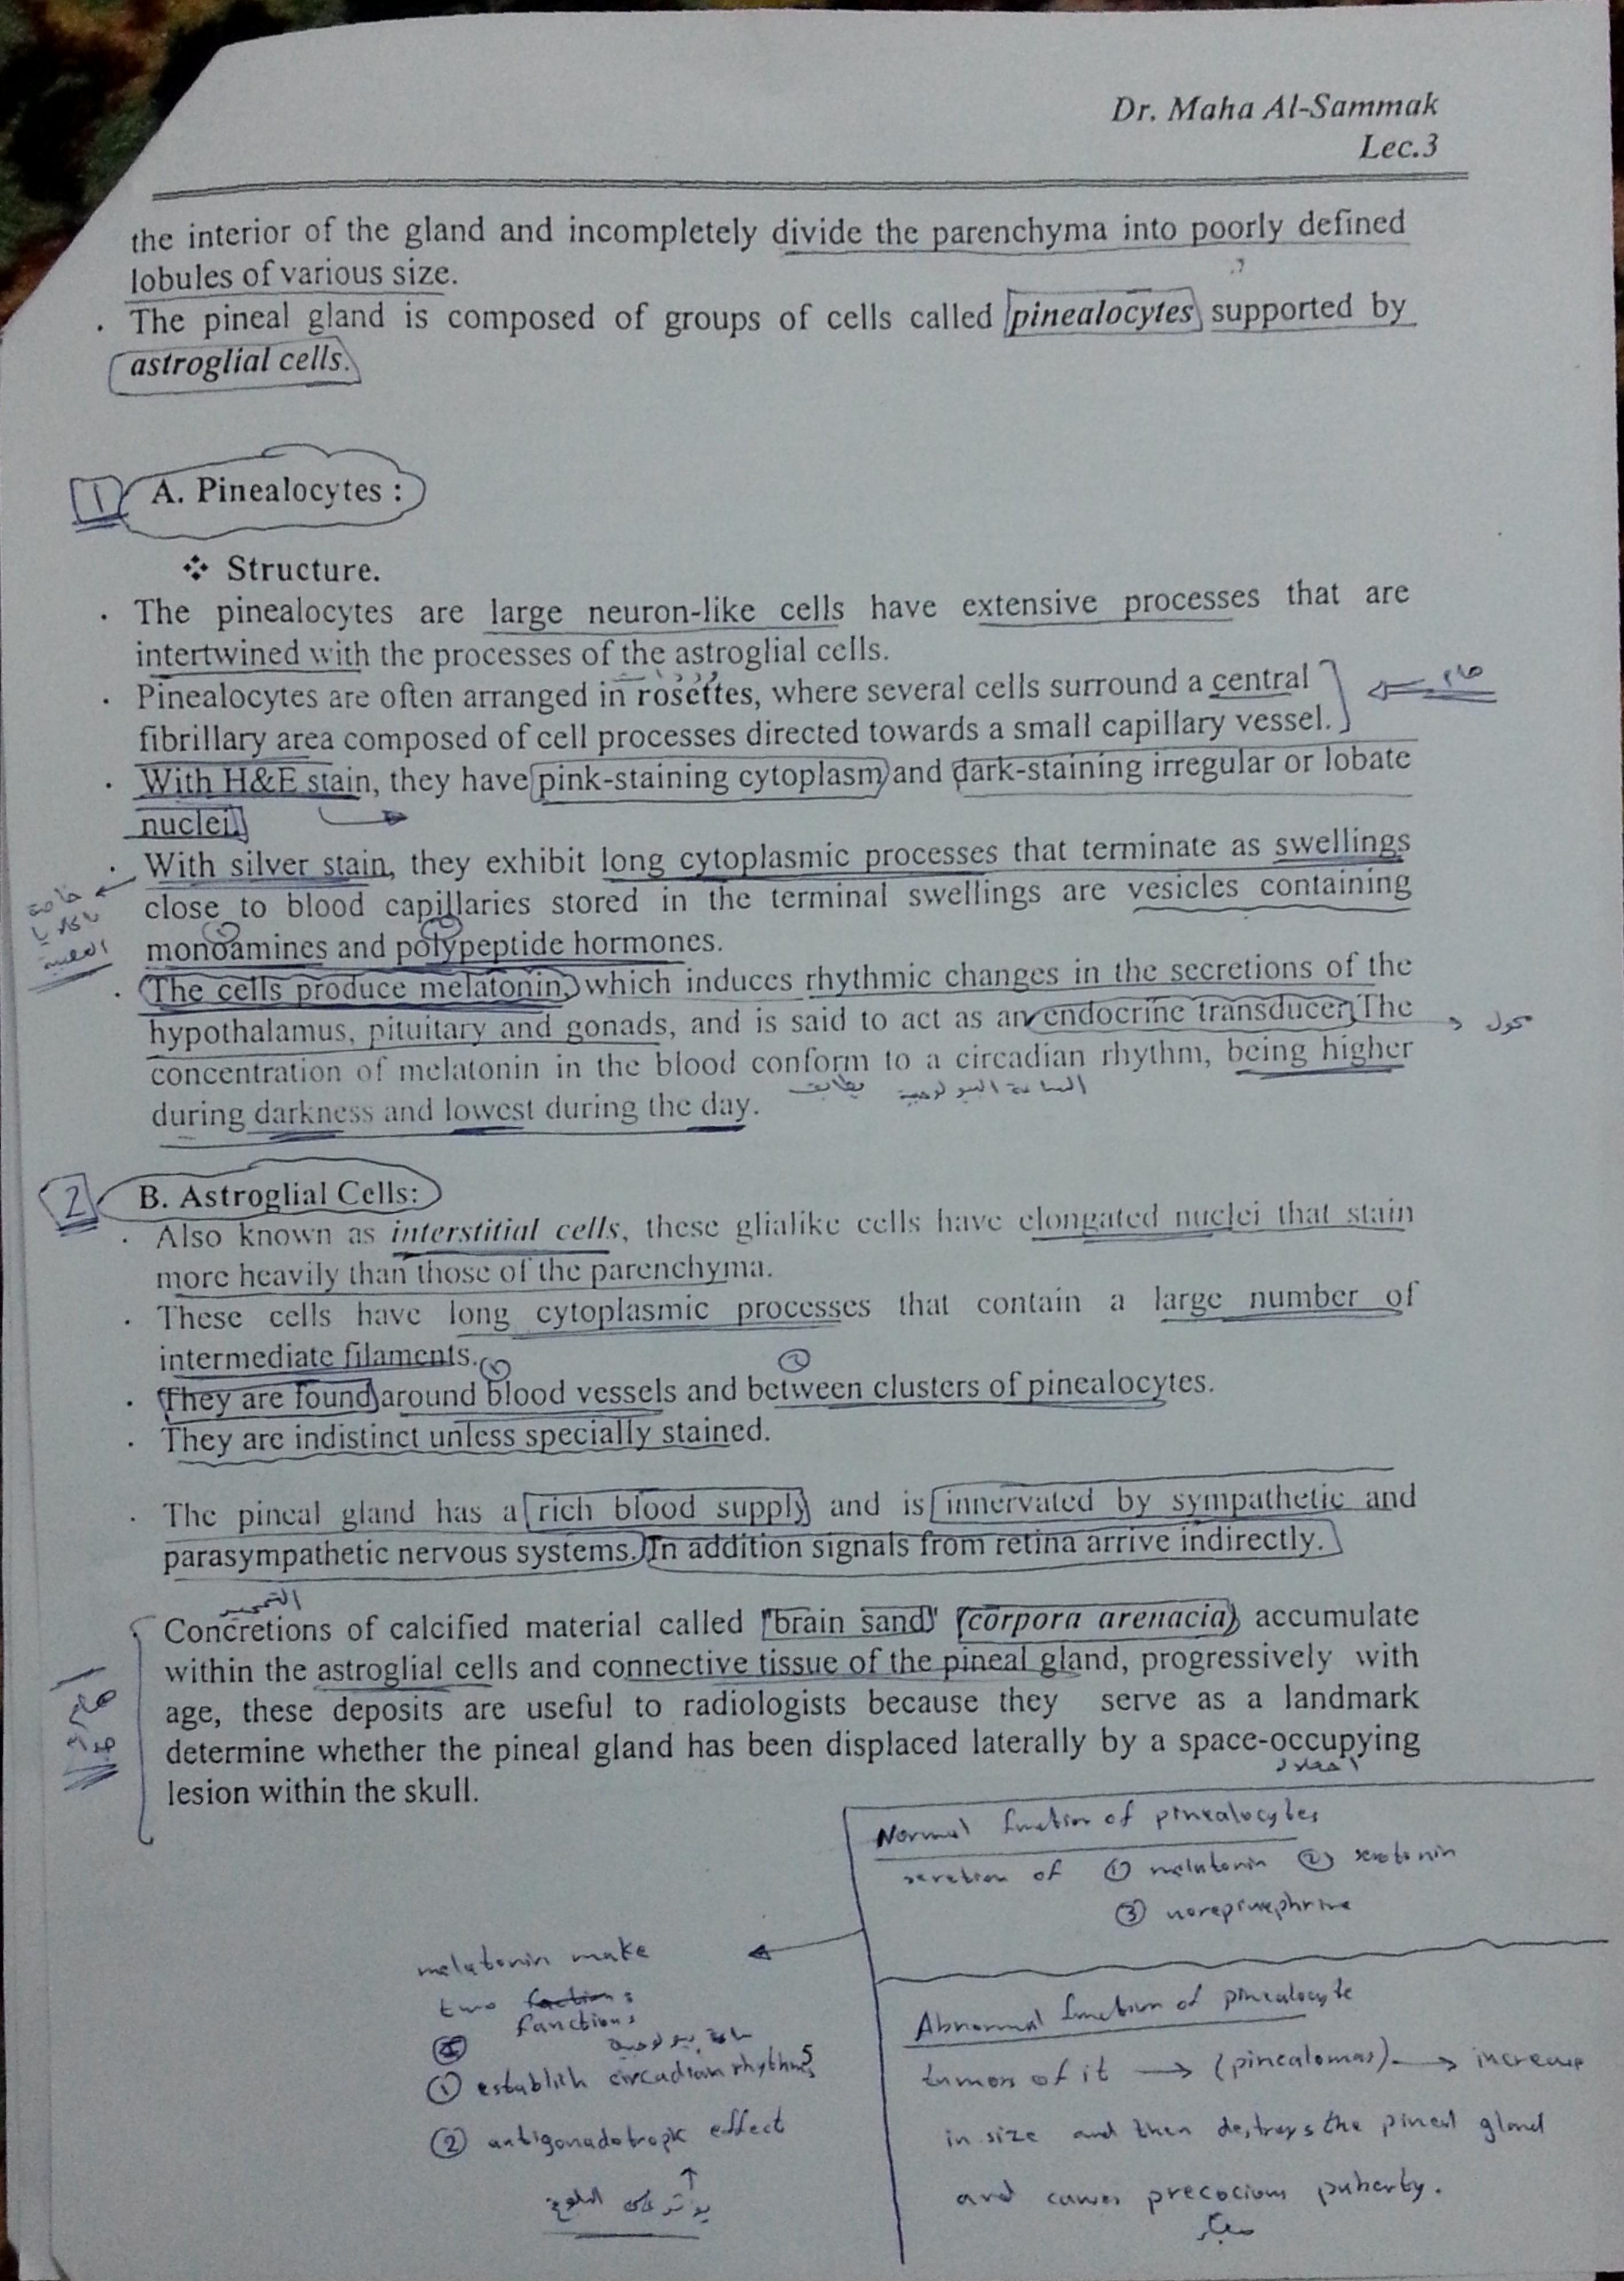 Dr. Maha Al-Sammak
Lec.3
the interior of the gland and incompletely divide the parenchyma into poorly defined
lobules of various size.
. The pineal gland is composed of groups of cells called pinealocytes supported by
astroglial cells.
1 A. Pinealocytes :
❖ Structure.
. The pinealocytes are large neuron-like cells have extensive processes that are
intertwined with the processes of the astroglial cells.
. Pinealocytes are often arranged in rosettes, where several cells surround a central
هام
fibrillary area composed of cell processes directed towards a small capillary vessel.
. With H&E stain, they have pink-staining cytoplasm and dark-staining irregular or lobate
nuclei.
. With silver stain, they exhibit long cytoplasmic processes that terminate as swellings
خاصة
close to blood capillaries stored in the terminal swellings are vesicles containing
بالخلايا
monoamines and polypeptide hormones.
العصبية
. The cells produce melatonin, which induces rhythmic changes in the secretions of the
hypothalamus, pituitary and gonads, and is said to act as an endocrine transducer. The
محول
concentration of melatonin in the blood conform to a circadian rhythm, being higher
يطابق الساعة البيولوجية
during darkness and lowest during the day.
2 B. Astroglial Cells:
. Also known as interstitial cells, these glialike cells have elongated nuclei that stain
more heavily than those of the parenchyma.
. These cells have long cytoplasmic processes that contain a large number of
intermediate filaments.
1 2
. They are found around blood vessels and between clusters of pinealocytes.
. They are indistinct unless specially stained.
. The pineal gland has a rich blood supply and is innervated by sympathetic and
parasympathetic nervous systems. In addition signals from retina arrive indirectly.
Concretions of calcified material called "brain sand" (corpora arenacia) accumulate
within the astroglial cells and connective tissue of the pineal gland, progressively with
age, these deposits are useful to radiologists because they serve as a landmark
determine whether the pineal gland has been displaced laterally by a space-occupying
lesion within the skull.
Normal function of pinealocytes
secretion of ① melatonin ② serotonin
③ norepinephrine
melatonin make
two
functions
ساعة بيولوجية
① establish circadian rhythms
② antigonadotropic effect
↑
يؤثر على البلوغ
Abnormal function of pinealocyte
tumors of it → (pinealomas) → increase
in size and then destroys the pineal gland
and causes precocious puberty.
مبكر